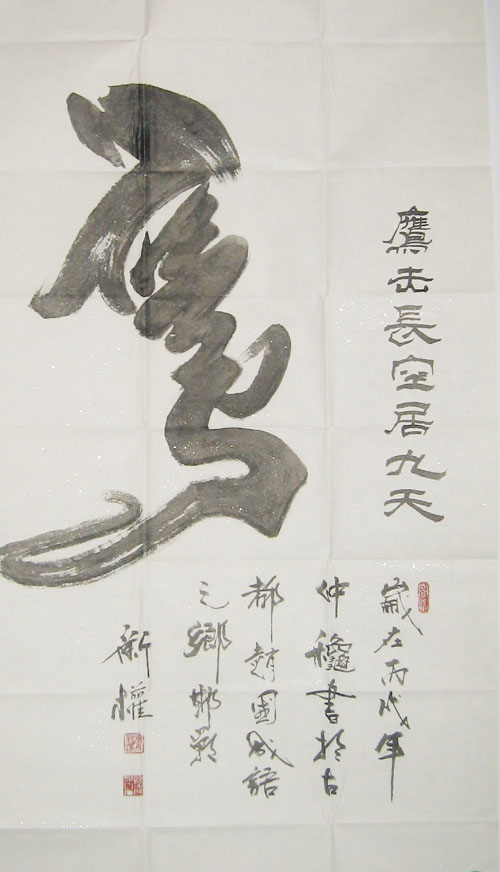 鷹
鷹击長空居九天
歲在丙戌年
仲龝書於古
都趙國成語
之鄉邯鄲
新權